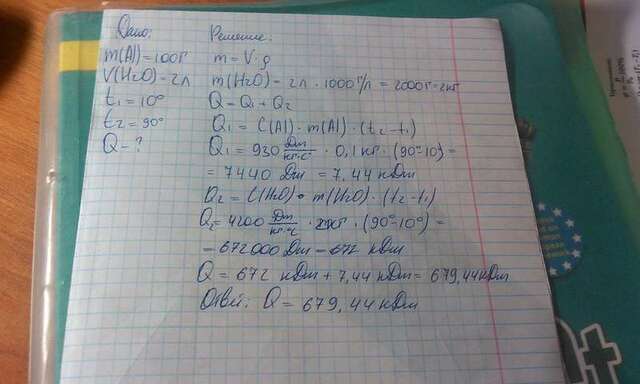 Дано:
m(Al)=100г
V(H₂O)-2л
t₁=10°
t₂=90°
Q-?
Решение:
m=V·ρ
m(H₂O)-2л·1000г/л=2000г-2кг
Q-Q₁+Q₂
Q₁=C(Al)·m(Al)·(t₂-t₁)
Q₁=930 Дж/кг·с·0,1кг·(90°-10)=
=7440 Дж=7,44 кДж
Q₂=C(H₂O)·m(H₂O)·(t₂-t₁)
Q₂=4200 Дж/кг·с·2кг·(90°-10°)=
-672000 Дж-672 кДж
Q=672 кДж+7,44кДж=679,44кДж
Ответ: Q=679,44кДж